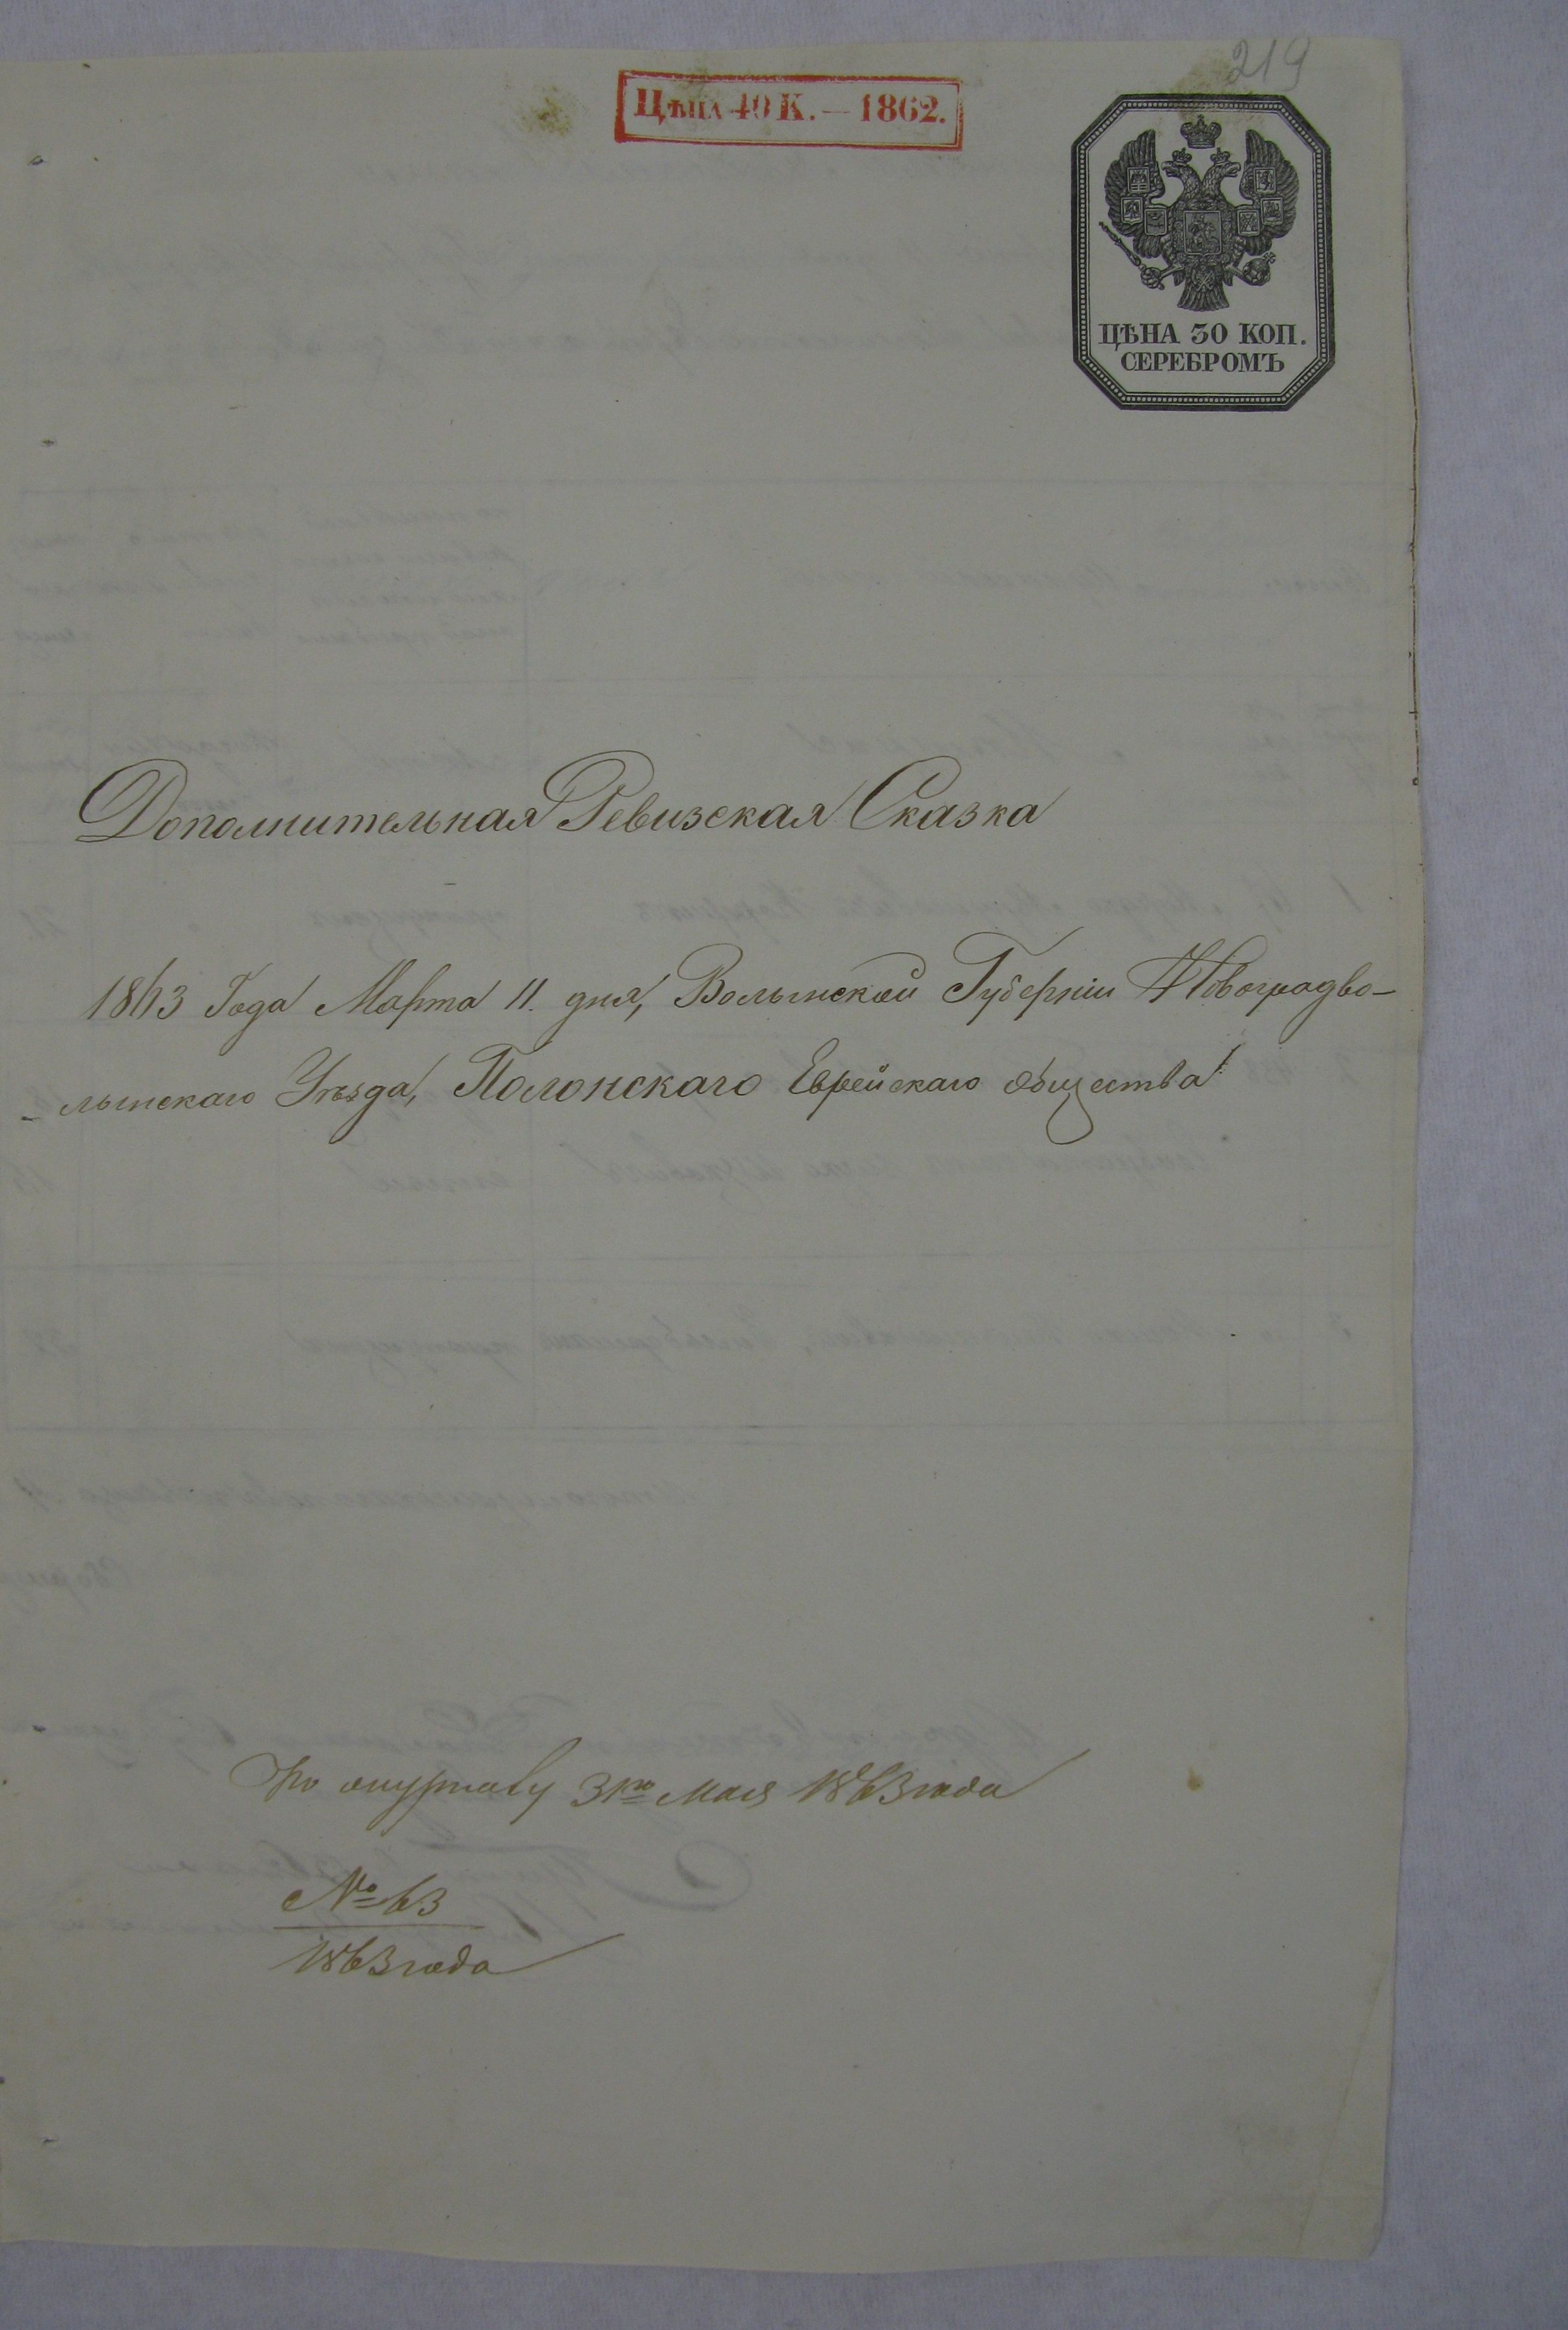 219
Цѣна 40 К. — 1862.
ЦѢНА 30 КОП.
СЕРЕБРОМЪ
Дополнительная Ревизская Сказка
1863 Года Марта 11. дня, Волынской Губерніи Новоградво-
- лынскаго Уѣзда, Полонскаго Еврейскаго общества
По журналу 31го мая 1863 года
№ 63
1863 года